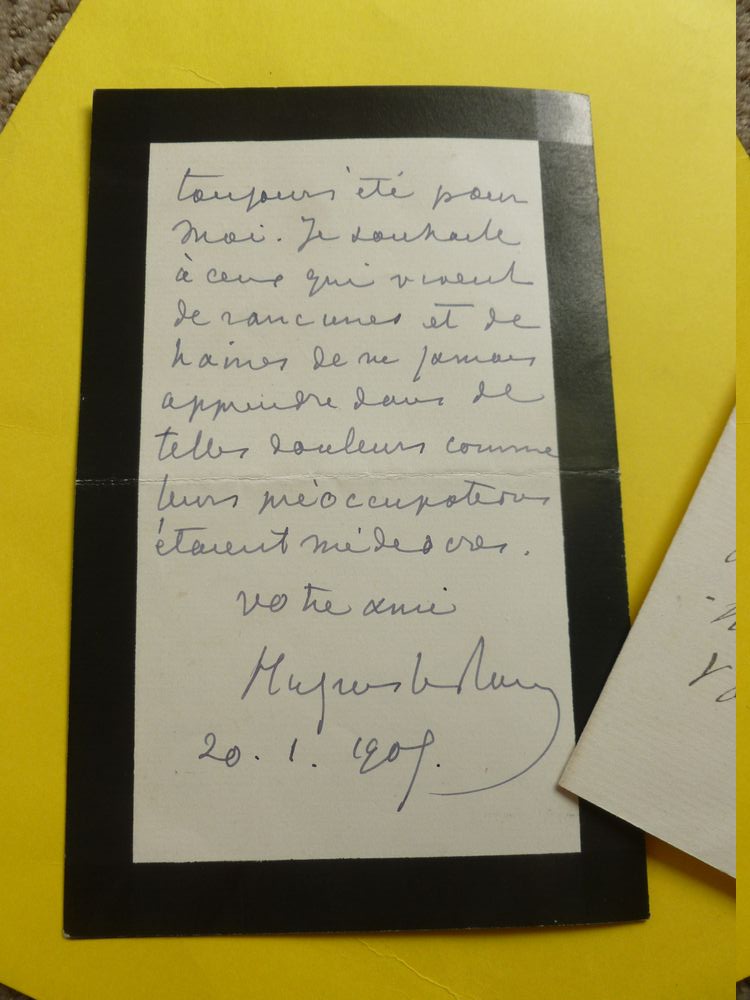 toujours été pour
moi. Je souhaite
à ceux qui vivent
de rancunes et de
haines de ne jamais
apprendre dans de
telles douleurs comme
leurs préoccupations
étaient médiocres.
votre ami
Hugues Le Roux
20. 1. 1909.